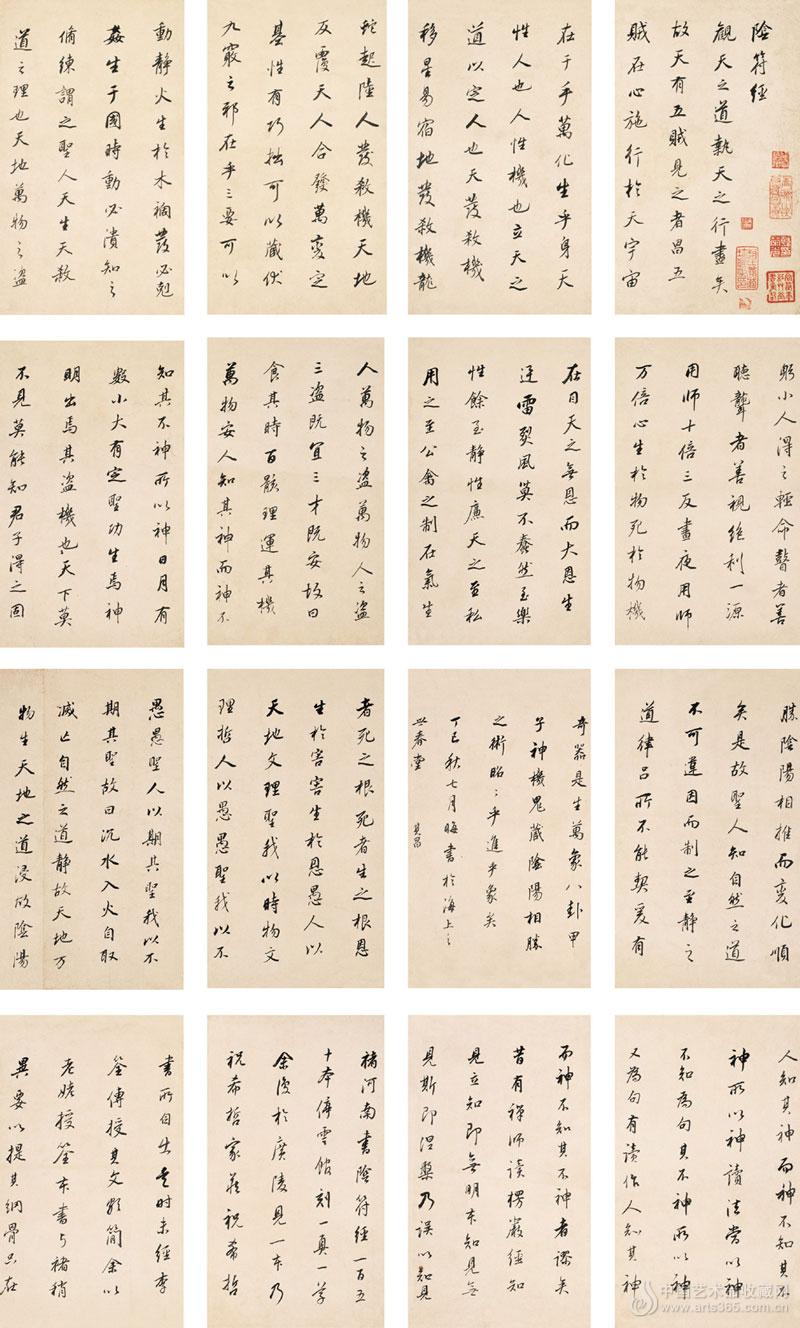 陰符經
觀天之道執天之行盡矣
故天有五賊見之者昌五
賊在心施行於天宇宙
在于手萬化生乎身天
性人也人性機也立天之
道以定人也天發殺機
移星易宿地發殺機龍
蛇起陸人發殺機天地
反覆天人合發萬變定
基性有巧拙可以藏伏
九竅之邪在乎三要可以
動靜火生於木禍發必尅
姦生于國時動必潰知之
脩練謂之聖人天生天殺
道之理也天地萬物之盜
人萬物之盜萬物人之盜
三盜既宜三才既安故曰
食其時百骸理運其機
萬物安人知其神而神不
知其不神所以神日月有
數小大有定聖功生焉神
明出焉其盜機也天下莫
不見莫能知君子得之固
躬小人得之輕命瞽者善
聽聾者善視絕利一源
用師十倍三反晝夜用師
万倍心生於物死於物機
在目天之無恩而大恩生
迅雷烈風莫不蠢然至樂
性餘至靜性廉天之至私
用之至公禽之制在氣生
者死之根死者生之根恩
生於害害生於恩愚人以
天地文理聖我以時物文
理哲人以愚愚聖我以不
愚愚聖人以期其聖我以不
期其聖故曰沉水入火自取
滅亡自然之道靜故天地万
物生天地之道浸故陰陽
勝陰陽相推而變化順
矣是故聖人知自然之道
不可違因而制之至靜之
道律呂所不能契爰有
奇器是生萬象八卦甲
子神機鬼藏陰陽相勝
之術昭〻乎進乎象矣
丁巳秋七月晦書於海上之
世春堂 其昌
褚河南書陰符經一百五
十本停雲館刻一真一草
余復於廣陵見一本乃
祝希哲家藏祝希哲
書所自出是時未經李
筌傳授其文頗簡余以
老姥授筌本書与褚稍
異要以提其綱骨只在
人知其神而神不知其不
神所以神讀法當以神
不知為句其不神所以神
又為句有讀作人知其神
而神不知其不神者謬矣
昔有禪師讀楞嚴經知
見立知即無明本知見無
見斯即涅槃乃誤以知見
中国艺术品收藏网
www.arts365.com.cn